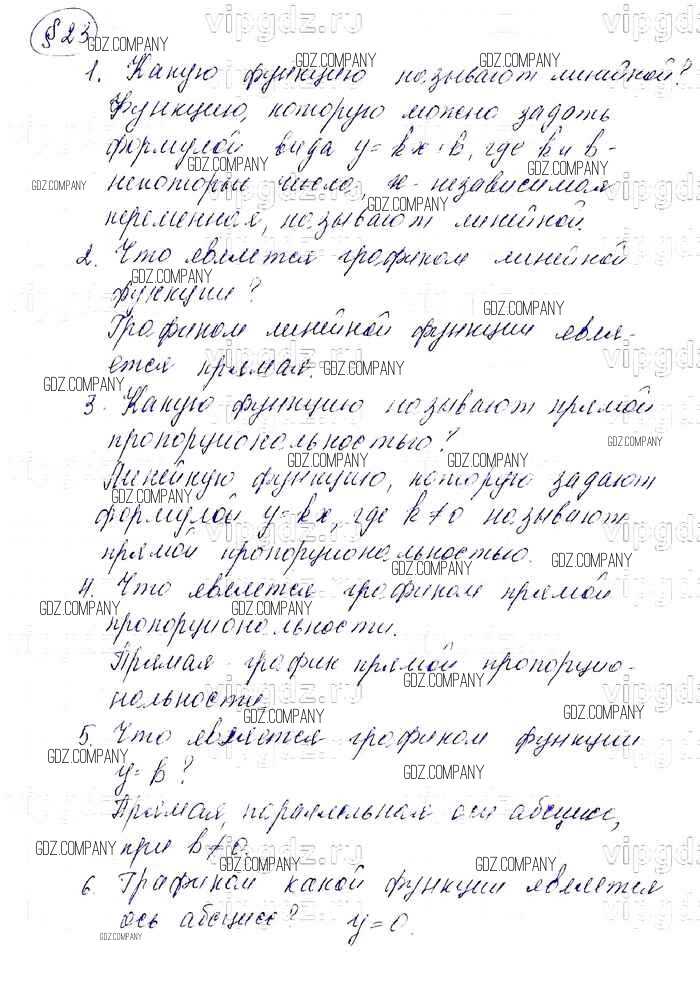 § 23
1. Какую функцию называют линейной?
Функцию, которую можно задать
формулой вида y = kx + b, где k и b -
некоторые числа, x - независимая
переменная, называют линейной.
2. Что является графиком линейной
функции?
Графиком линейной функции явля-
ется прямая.
3. Какую функцию называют прямой
пропорциональностью?
Линейную функцию, которую задают
формулой y = kx, где k ≠ 0 называют
прямой пропорциональностью.
4. Что является графиком прямой
пропорциональности.
Прямая - график прямой пропорцио-
нальности
5. Что является графиком функции
y = b?
Прямая, параллельная оси абсцисс,
при b ≠ 0.
6. Графиком какой функции является
ось абсцисс? y = 0.
vipgdz.ru
GDZ.COMPANY